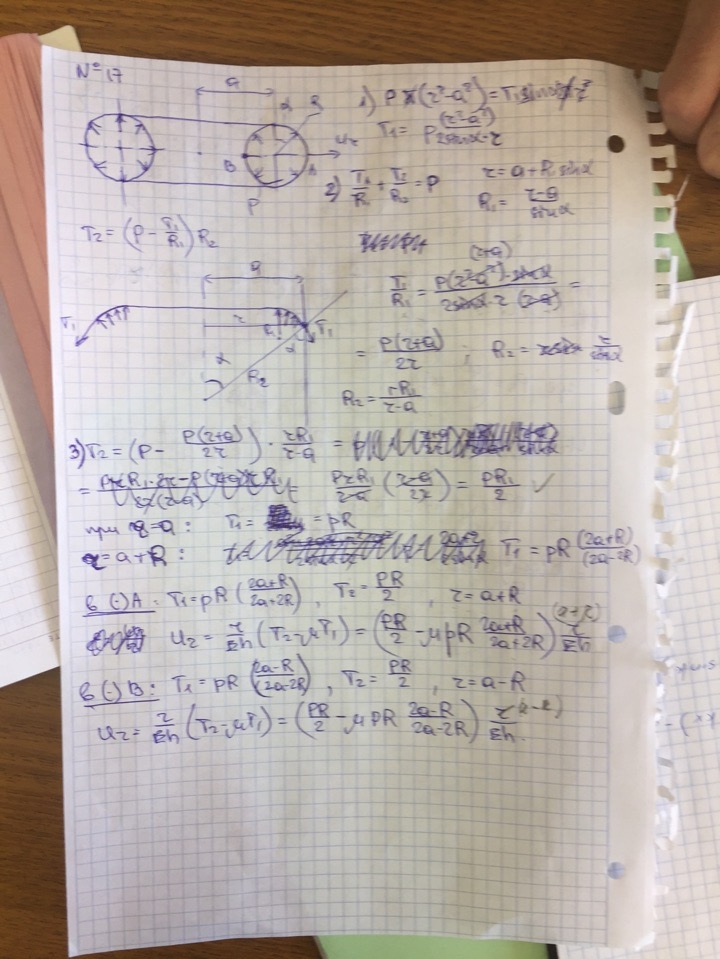 №17
a
1) pπ(r²-a²) = T₁ sinα
T₁ = p(r²-a²)/(2 sinα·r)
2) T₁/R₁ + T₂/R₂ = p
r = a + R₁ sinα
R₁ = (r-a)/sinα
B
A
P
T₂ = (p - T₁/R₁) R₂
a
r
T₁
T₁
α
α
R₂
T₁/R₁ = p(r²-a²)·sinα/(2 sinα·r (r-a)) =
(r+a)
= p(r+a)/2r ; R₂ = r/sinα
R₂ = rR₁/(r-a)
3) T₂ = (p - p(r+a)/2r) · rR₁/(r-a) =
= prR₁/(r-a) ((r-a)/2r) = pR₁/2 ✓
при r=a : T₁ = = pR
r = a+R : T₁ = pR (2a+R)/(2a-2R)
в (·) A : T₁ = pR (2a+R)/(2a+2R) , T₂ = pR/2 , r = a+R
u₂ = r/Eh (T₂-μT₁) = (pR/2 - μpR (2a+R)/(2a+2R)) r/Eh (a+R)
в (·) B : T₁ = pR (2a-R)/(2a-2R) , T₂ = pR/2 , r = a-R
u₂ = r/Eh (T₂-μT₁) = (pR/2 - μpR (2a-R)/(2a-2R)) r/Eh.